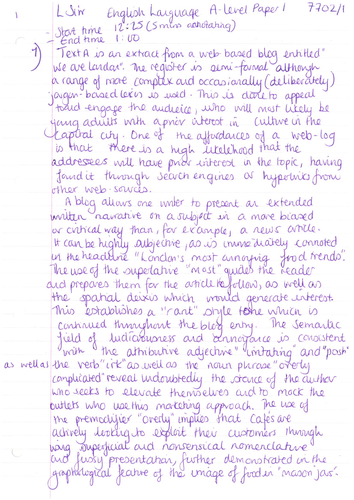 1 L Skir English Language A-level Paper 1 7702/1
- Start time 12:25 (5 mins annotating)
- End time 1:00
1) Text A is an extract from a web based blog entitled "
we are london". The register is semi-formal although
a range of more complex and occasionally (deliberately)
jargon-based lexis is used. This is done to appeal
to and engage the audience, who will most likely be
young adults with a prior interest in culture in the
capital city. One of the affordances of a web-log
is that there is a high likelihood that the
addressees will have prior interest in the topic, having
found it through search engines or hyperlinks from
other web-sources.
A blog allows one writer to present an extended
written narrative on a subject in a more biased
or critical way than, for example, a news article.
It can be highly subjective, as is immediately connoted
in the headline "London's most annoying food trends".
The use of the superlative "most" guides the reader
and prepares them for the article to follow, as well as
the spatial deixis which would generate interest.
This establishes a "rant" style tone which is
continued throughout the blog entry. The semantic
field of ludicrousness and annoyance is consistent
with the attributive adjective "irritating" and "posh"
as well as the verb "irk" as well as the noun phrase "overly
complicated" reveal undoubtedly the stance of the author
who seeks to elevate themselves and to mock the
outlets who use this marketing approach. The use of
the premodifier "overly" implies that cafés are
actively looking to exploit their customers through
using superficial and nonsensical nomenclature
and fussy presentation, further demonstrated in the
graphological feature of the image of food in "mason jars".